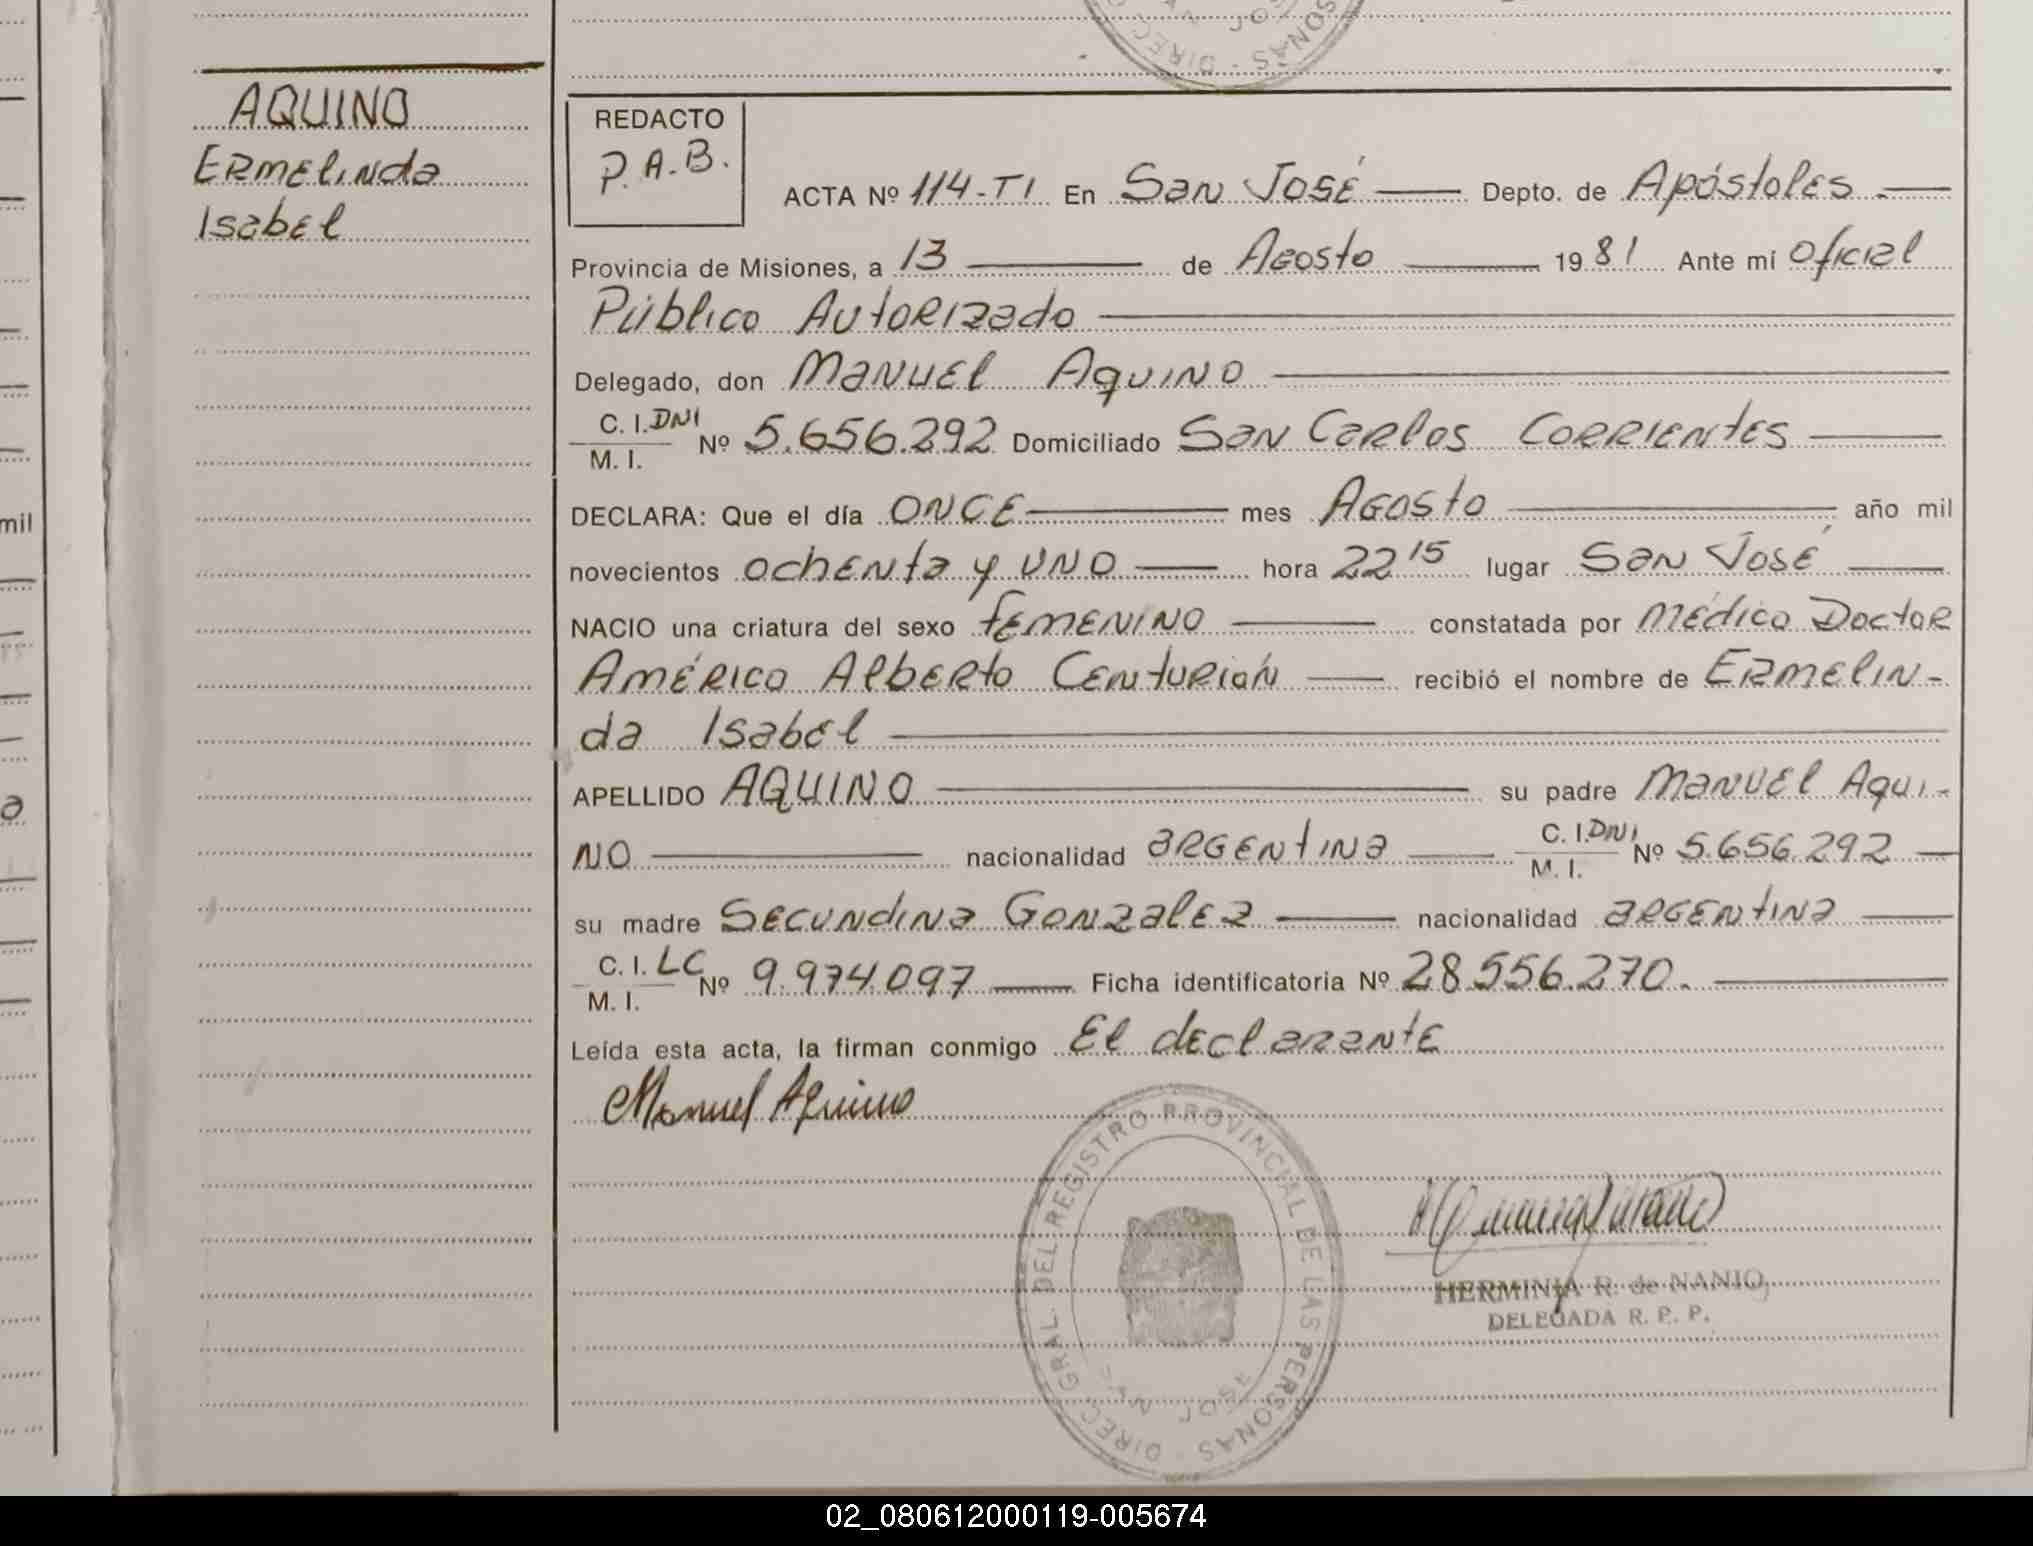 AQUINO
Ermelinda
Isabel
REDACTO
P.A.B.
ACTA Nº 114-TI En San José Depto. de Apóstoles
Provincia de Misiones, a 13 de Agosto 1981 Ante mi Oficial
Público Autorizado
Delegado, don Manuel Aquino
C. I. DNI
M. I. Nº 5.656.292 Domiciliado San Carlos Corrientes
DECLARA: Que el día once mes Agosto año mil
novecientos ochenta y uno hora 22 15 lugar San José
NACIO una criatura del sexo femenino constatada por Médico Doctor
Américo Alberto Centurión recibió el nombre de Ermelin-
da Isabel
APELLIDO AQUINO su padre Manuel Aqui-
no nacionalidad argentina C. I. DNI M. I. Nº 5.656.292
su madre Secundina Gonzalez nacionalidad argentina
C. I. LC
M. I. Nº 9.974.097 Ficha identificatoria Nº 28.556.270.
Leída esta acta, la firman conmigo El declarante
Manuel Aquino
DIREC. GRAL. DEL REGISTRO PROVINCIAL DE LAS PERSONAS
SAN JOSE
HERMINIA R. de NANIO
DELEGADA R. P. P.
mil
02_080612000119-005674